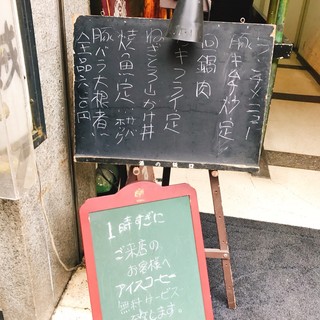 ランチメニュー
豚キムチ炒定
回鍋肉
カキフライ定
ねぎとろ山かけ丼
焼魚定 サバ ホッケ
豚バラ大根煮
全品六八〇円
1時すぎに
ご来店の
お客様へ
アイスコーヒー
無料サービス
致します。